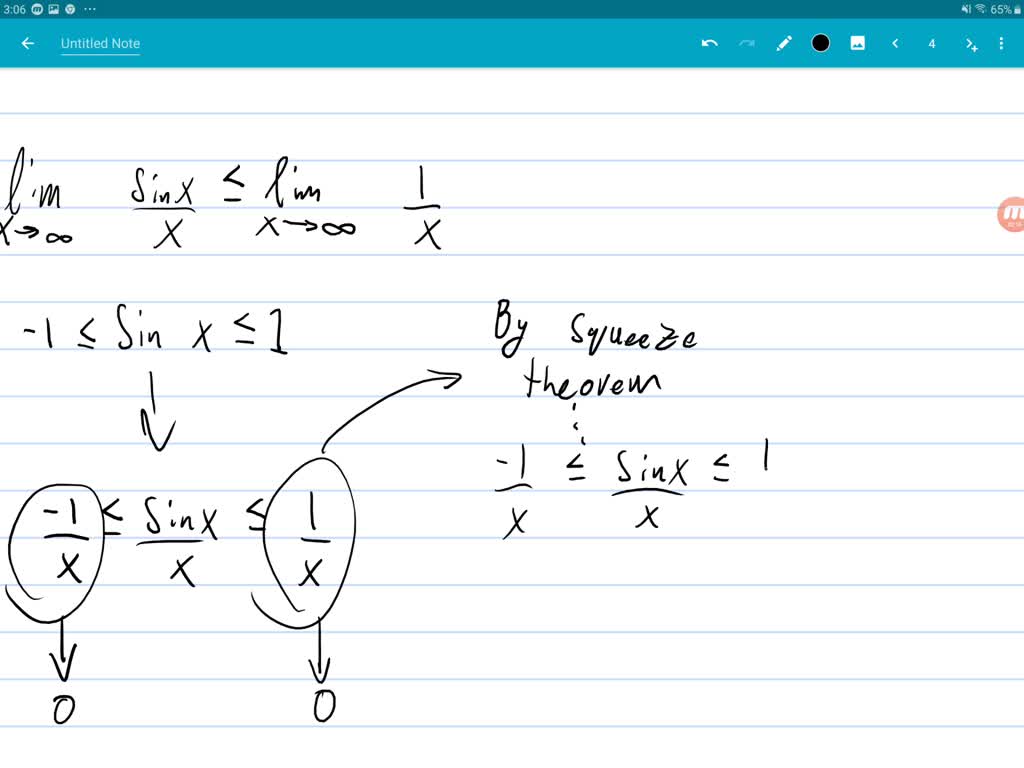 3:06 65%
Untitled Note 4
lim x→∞ sinx/x ≤ lim x→∞ 1/x
-1 ≤ Sin x ≤ 1
By squeeze
theorem
-1/x ≤ sinx/x ≤ 1
-1/x ≤ sinx/x ≤ 1/x
0 0